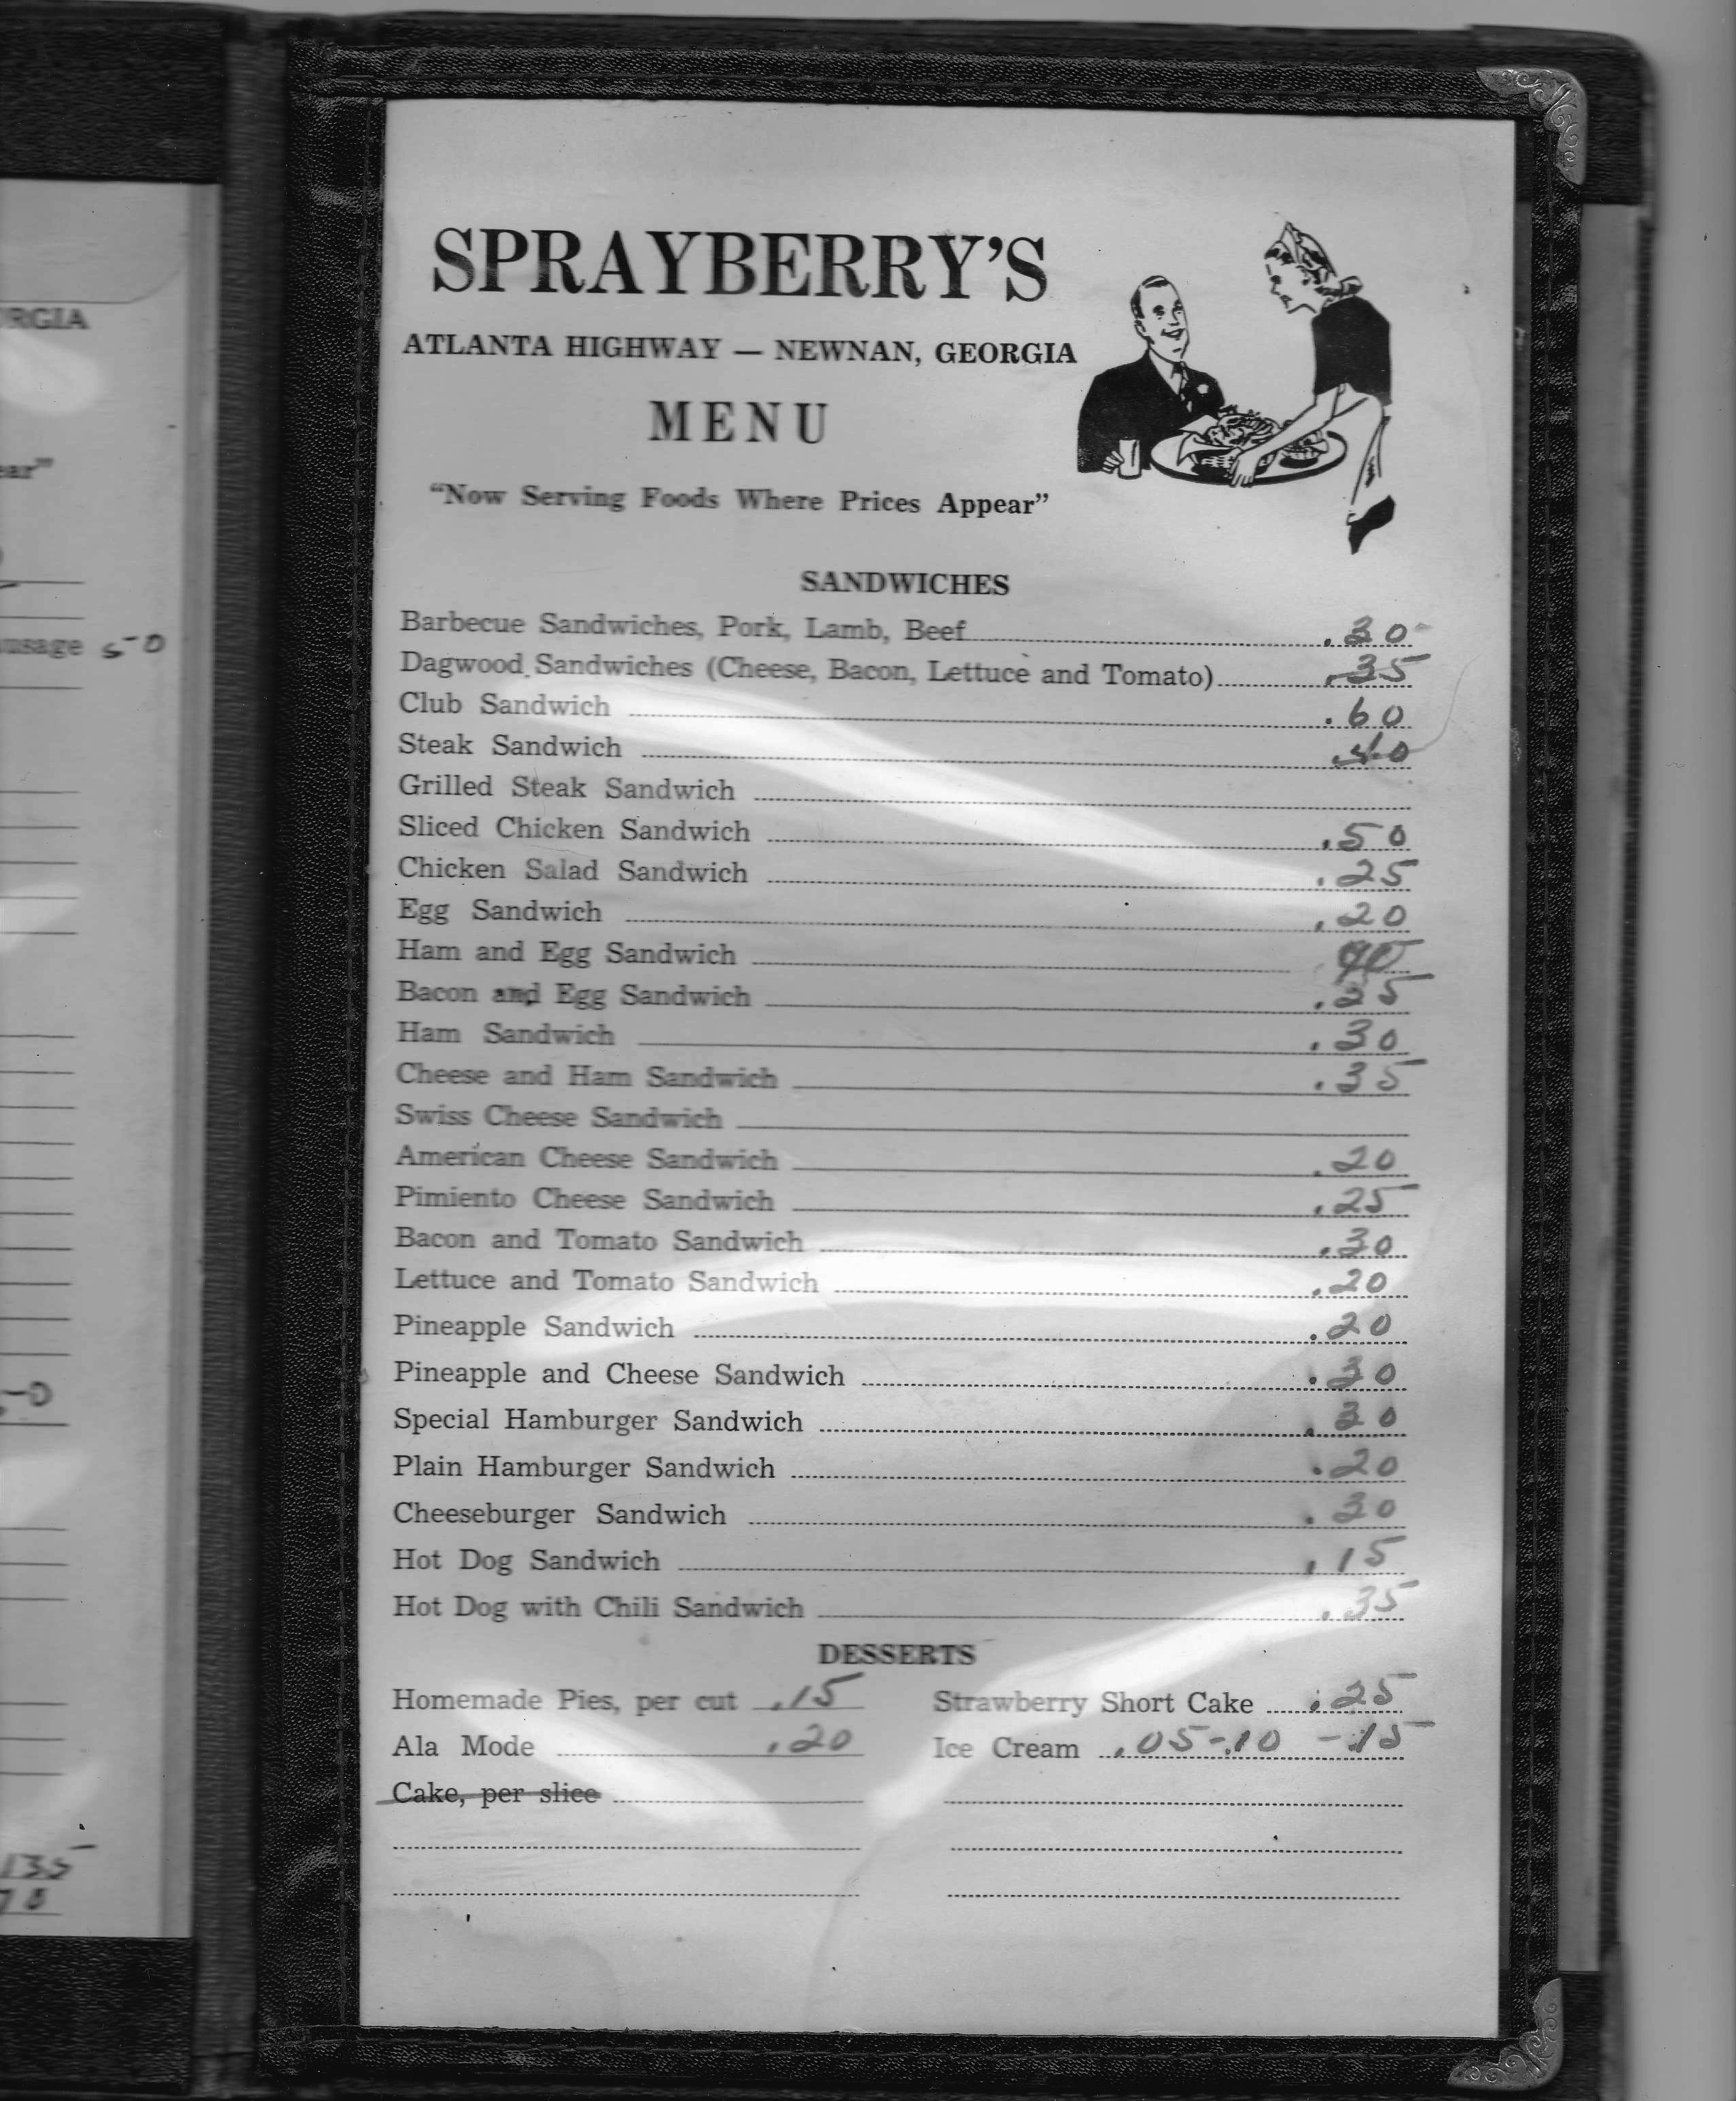 RGIA
ear"
usage 50
135
70
SPRAYBERRY'S
ATLANTA HIGHWAY — NEWNAN, GEORGIA
MENU
"Now Serving Foods Where Prices Appear"
SANDWICHES
Barbecue Sandwiches, Pork, Lamb, Beef .30
Dagwood Sandwiches (Cheese, Bacon, Lettuce and Tomato) .35
Club Sandwich .60
Steak Sandwich .40
Grilled Steak Sandwich
Sliced Chicken Sandwich .50
Chicken Salad Sandwich .25
Egg Sandwich .20
Ham and Egg Sandwich
Bacon and Egg Sandwich
Ham Sandwich .30
Cheese and Ham Sandwich .35
Swiss Cheese Sandwich
American Cheese Sandwich .20
Pimiento Cheese Sandwich .25
Bacon and Tomato Sandwich .30
Lettuce and Tomato Sandwich .20
Pineapple Sandwich .20
Pineapple and Cheese Sandwich .30
Special Hamburger Sandwich .30
Plain Hamburger Sandwich .20
Cheeseburger Sandwich .30
Hot Dog Sandwich .15
Hot Dog with Chili Sandwich .35
DESSERTS
Homemade Pies, per cut .15
Strawberry Short Cake .25
Ala Mode .20
Ice Cream .05-.10 -.15
Cake, per slice